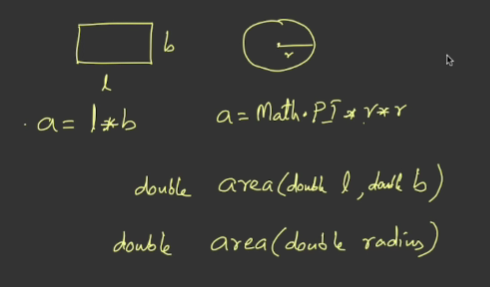 b
r
l
a = l*b
a = Math.PI * r*r
double area(double l, double b)
double area(double radius)